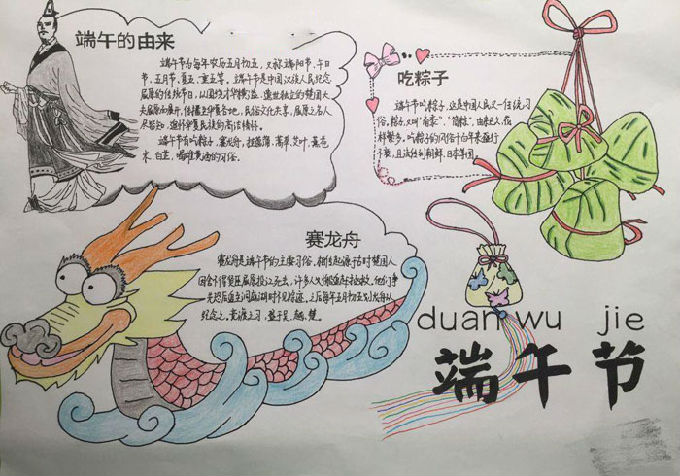 端午的由来
端午节为每年农历五月初五，又称端阳节、午日
节、五月节、夏五、重五等。端午节是中国汉族人民纪念
屈原的传统节日，以围绕才华横溢、遗世独立的楚国大
夫屈原而展开，传播至华夏各地，民俗文化共享，屈原之名人
尽皆知，追怀华夏民族的高洁情怀。
端午节有吃粽子，赛龙舟，挂菖蒲、蒿草、艾叶，薰苍
术、白芷，喝雄黄酒的习俗。
吃粽子
端午节吃粽子，这是中国人民又一传统习
俗。粽子，又叫"角黍"、"筒粽"，由来已久，花
样繁多。吃粽子的风俗千百年来盛行
不衰，且流传到朝鲜、日本等国。
赛龙舟
赛龙舟是端午节的主要习俗。相传起源于古时楚国人
因舍不得贤臣屈原投江死去，许多人划船追赶拯救。他们争
先恐后追至洞庭湖时不见踪迹，之后每年五月初五划龙舟以
纪念之。竞渡之习，盛于吴、越、楚。
duan wu jie
端午节